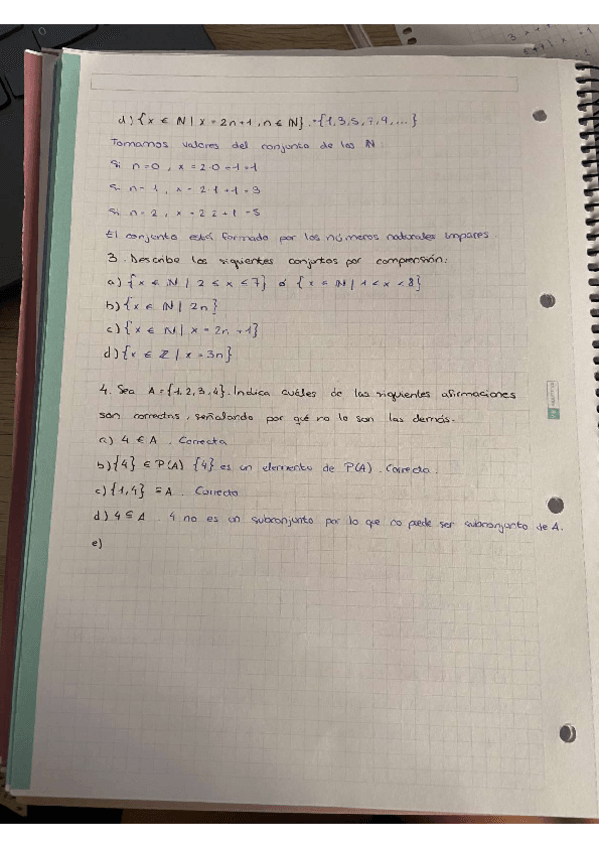 d) {x ∈ ℕ | x = 2n+1, n ∈ ℕ} = {1,3,5,7,9,...}
Tomamos valores del conjunto de los ℕ:
Si n=0, x = 2·0+1=1
Si n=1, x = 2·1+1=3
Si n=2, x = 2·2+1=5
El conjunto está formado por los números naturales impares
3. Describe los siguientes conjuntos por comprensión:
a) {x ∈ ℕ | 2 ≤ x ≤ 7} ó {x ∈ ℕ | 1 < x < 8}
b) {x ∈ ℕ | 2n}
c) {x ∈ ℕ | x = 2n+1}
d) {x ∈ ℤ | x = 3n}
4. Sea A = {1,2,3,4}. Indica cuáles de las siguientes afirmaciones
son correctas, señalando por qué no lo son las demás.
a) 4 ∈ A. Correcta
b) {4} ∈ P(A) {4} es un elemento de P(A). Correcta.
c) {1,4} ⊆ A. Correcta
d) 4 ⊆ A. 4 no es un subconjunto por lo que no puede ser subconjunto de A.
e)